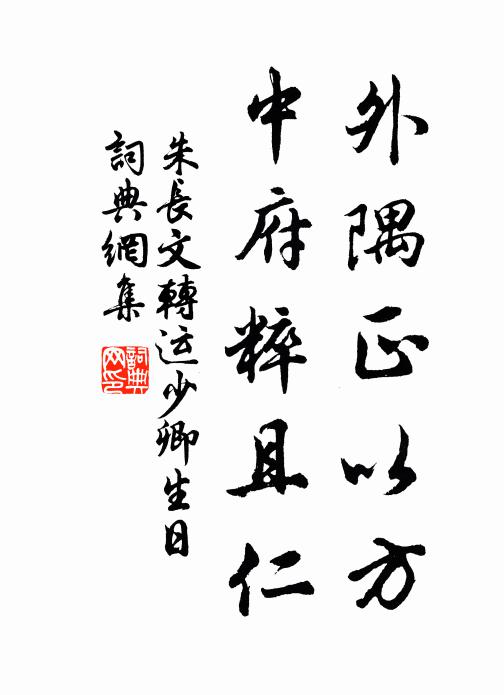 外隅正以方
中府粹且仁
朱長文轉运少卿生日
詞典網集
詞典
网印